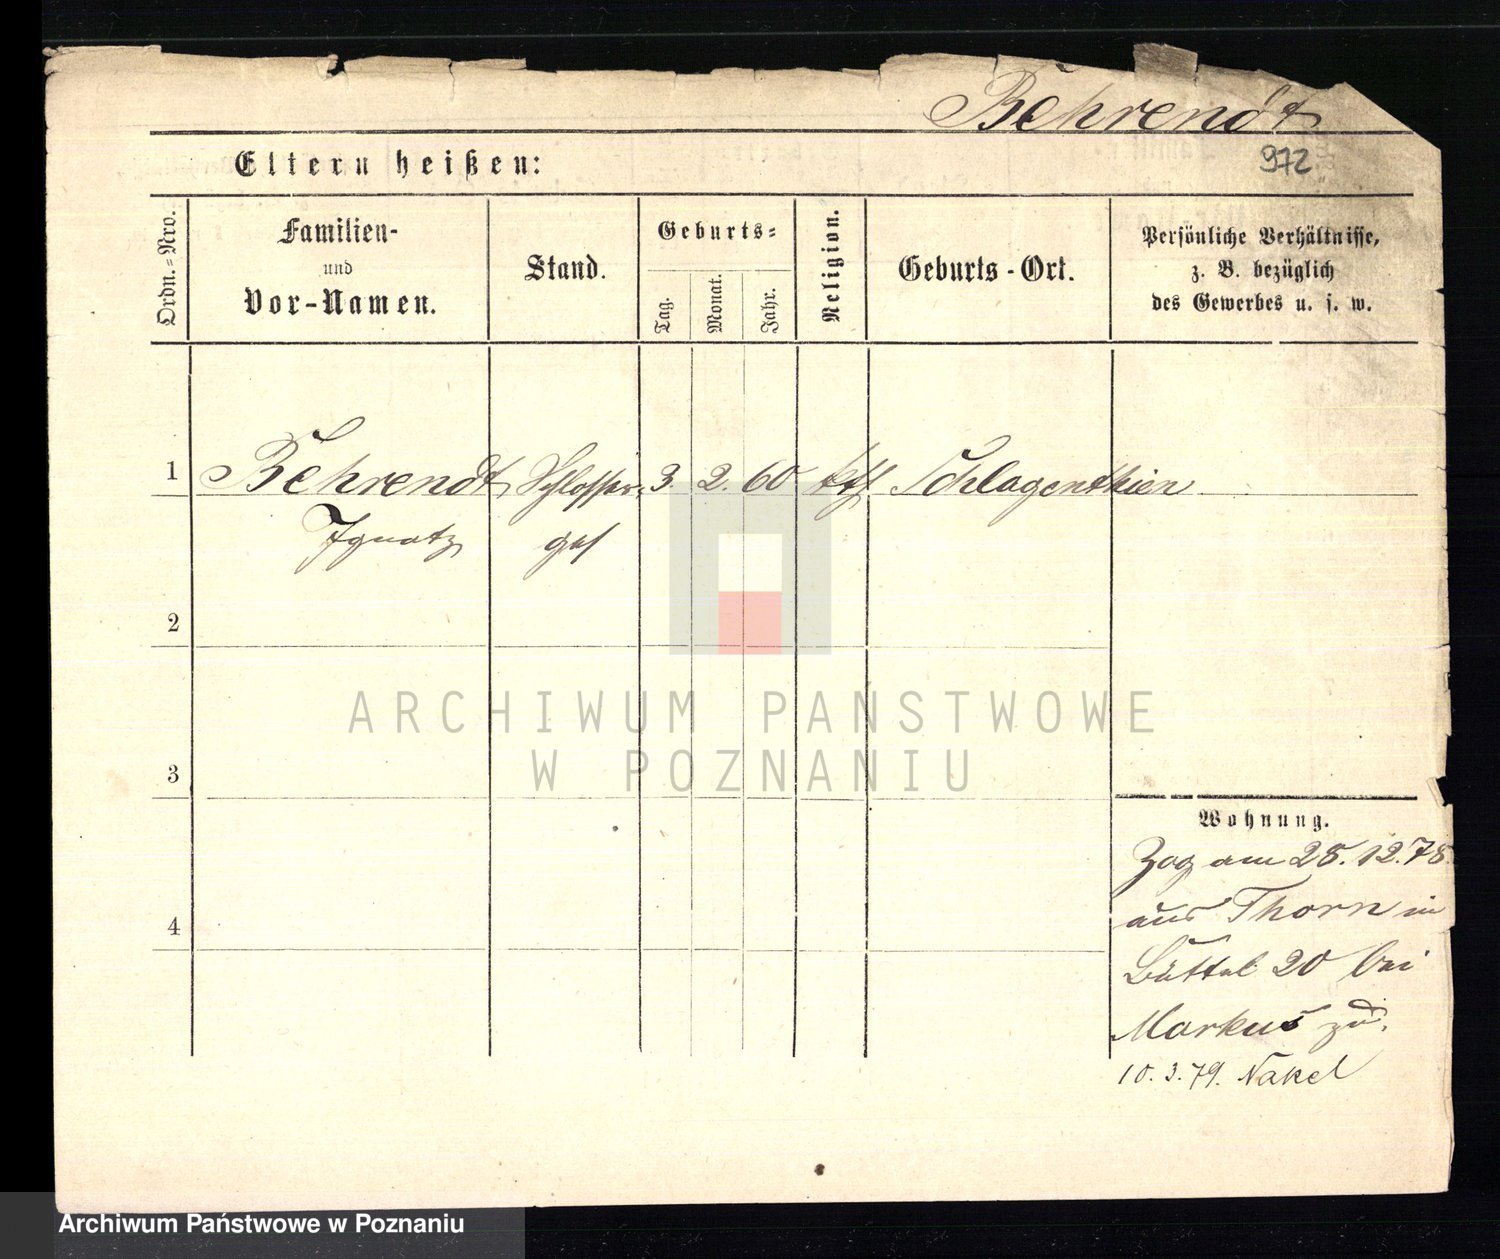 Behrendt
972
Eltern heißen:
Ordn.=Nro.
Familien-
und
Vor-Namen.
Stand.
Geburts=
Tag.
Monat.
Jahr.
Religion.
Geburts-Ort.
Persönliche Verhältnisse,
z. B. bezüglich
des Gewerbes u. s. w.
1
Behrendt Schlosser= 3. 2. 60 kth Schlagenthien
Ignatz ges
2
3
4
Wohnung.
Zog am 28.12.78.
aus Thorn in
Büttel 20 bei
Markus zu.
10.3.79. Nakel
ARCHIWUM PAŃSTWOWE
W POZNANIU
Archiwum Państwowe w Poznaniu